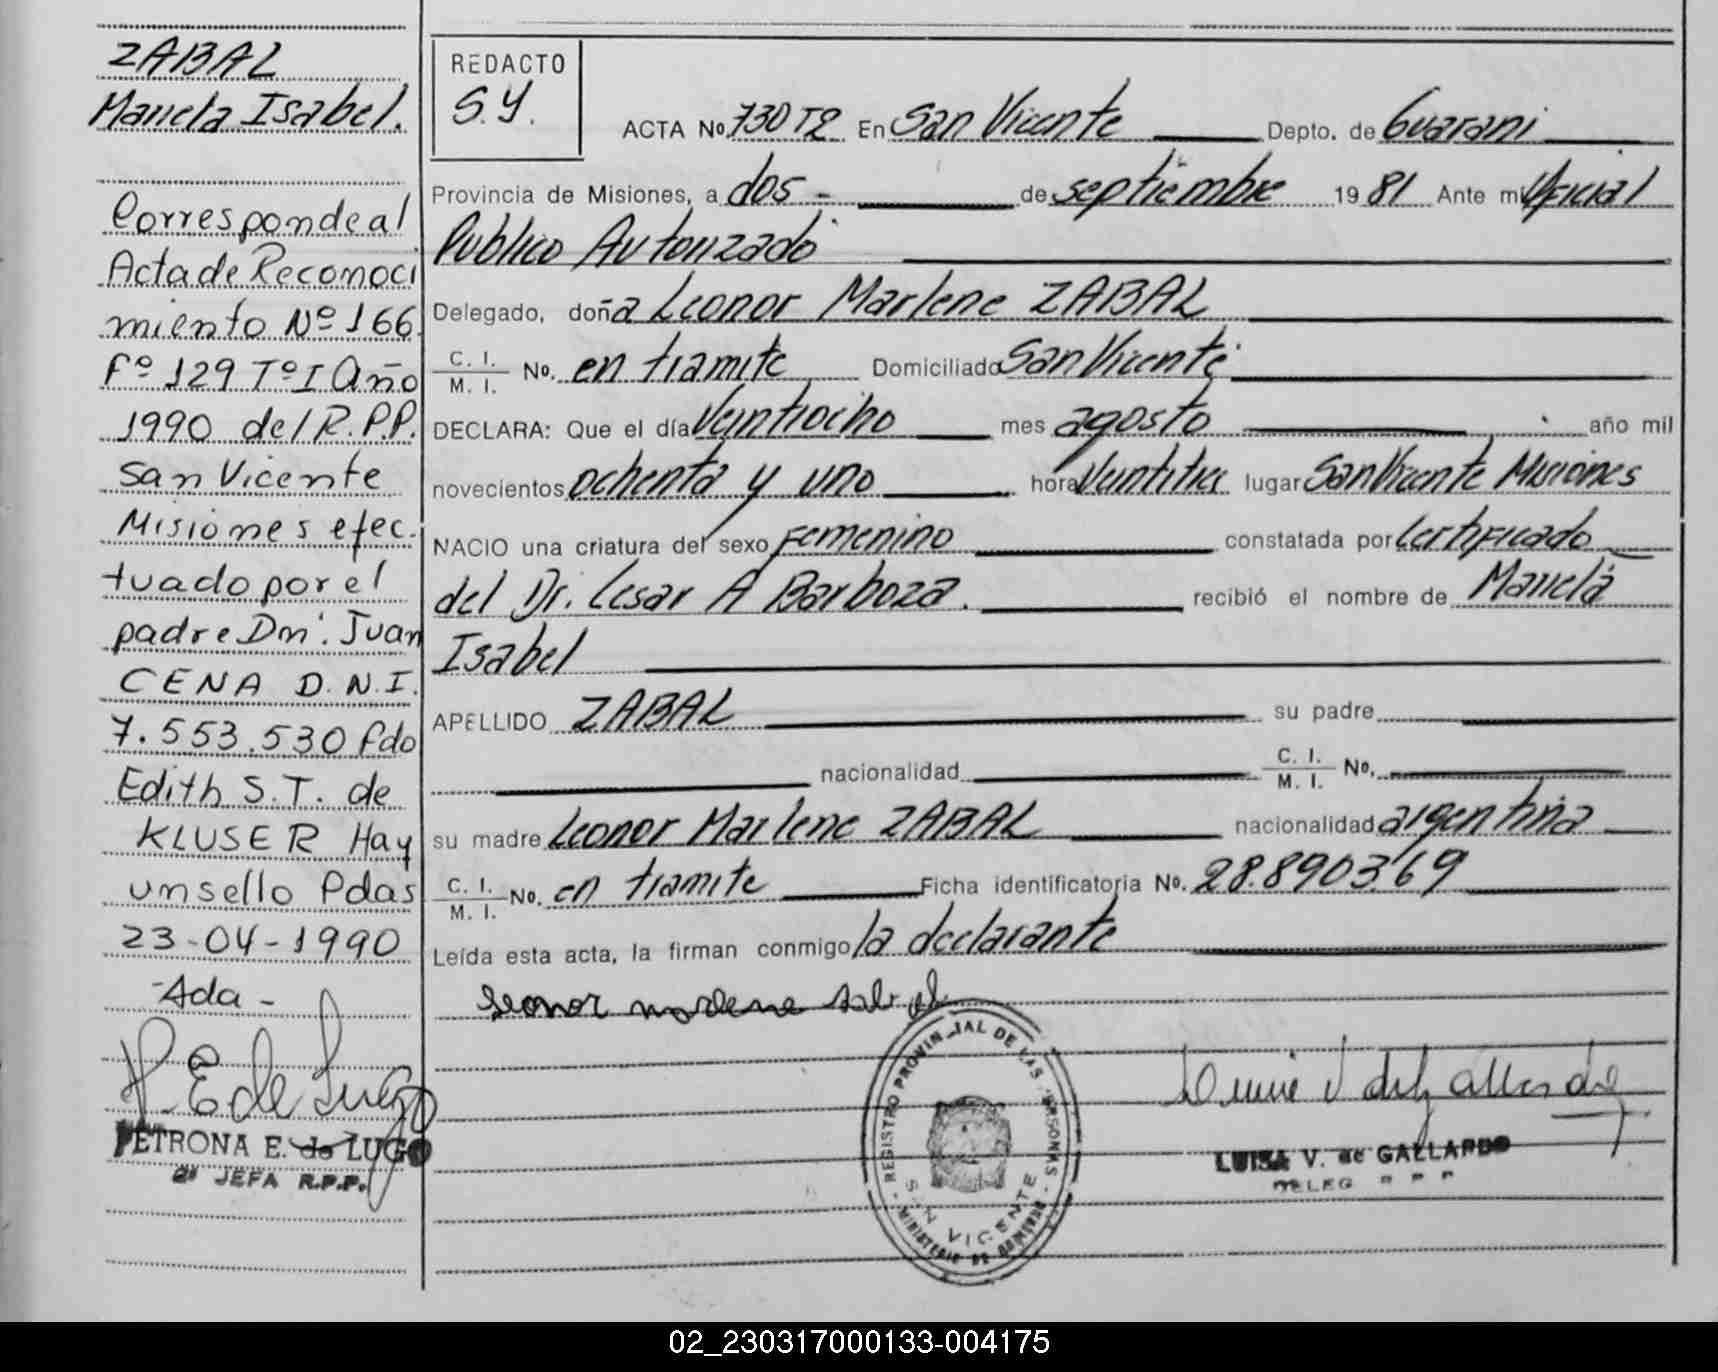 ZABAL
Manuela Isabel.
Corresponde al
Acta de Reconoci
miento Nº 166
Fº 129 Tº I Año
1990 del R.P.P.
San Vicente
Misiones efec.
tuado por el
padre Dn. Juan
CENA D.N.I.
7.553.530 fdo
Edith S.T. de
KLUSER Hay
un sello Pdas
23-04-1990
-Ada-
P. E de Lugo
PETRONA E. de LUGO
2ª JEFA R.P.P.
REDACTO
S.Y.
ACTA No. 730 T2 En San Vicente Depto. de Guarani
Provincia de Misiones, a dos - de septiembre 1981 Ante mi Oficial
Publico Autorizado
Delegado, doña Leonor Marlene ZABAL
C. I. / M. I. No. en tramite Domiciliado San Vicente
DECLARA: Que el día Veintiocho mes agosto año mil
novecientos ochenta y uno hora Veintitres lugar San Vicente Misiones
NACIO una criatura del sexo Femenino constatada por Certificado
del Dr. Cesar A Barboza. recibió el nombre de Manuela
Isabel
APELLIDO ZABAL su padre
nacionalidad C. I. / M. I. No.
su madre Leonor Marlene ZABAL nacionalidad argentina
C. I. / M. I. No. en tramite Ficha identificatoria No. 28.890.369
Leída esta acta, la firman conmigo la declarante
Leonor marlene Zabal
REGISTRO PROVINCIAL DE LAS PERSONAS
SAN VICENTE
MINISTERIO DE GOBIERNO
LUISA V. de GALLARDO
DELEG R P P
02_230317000133-004175